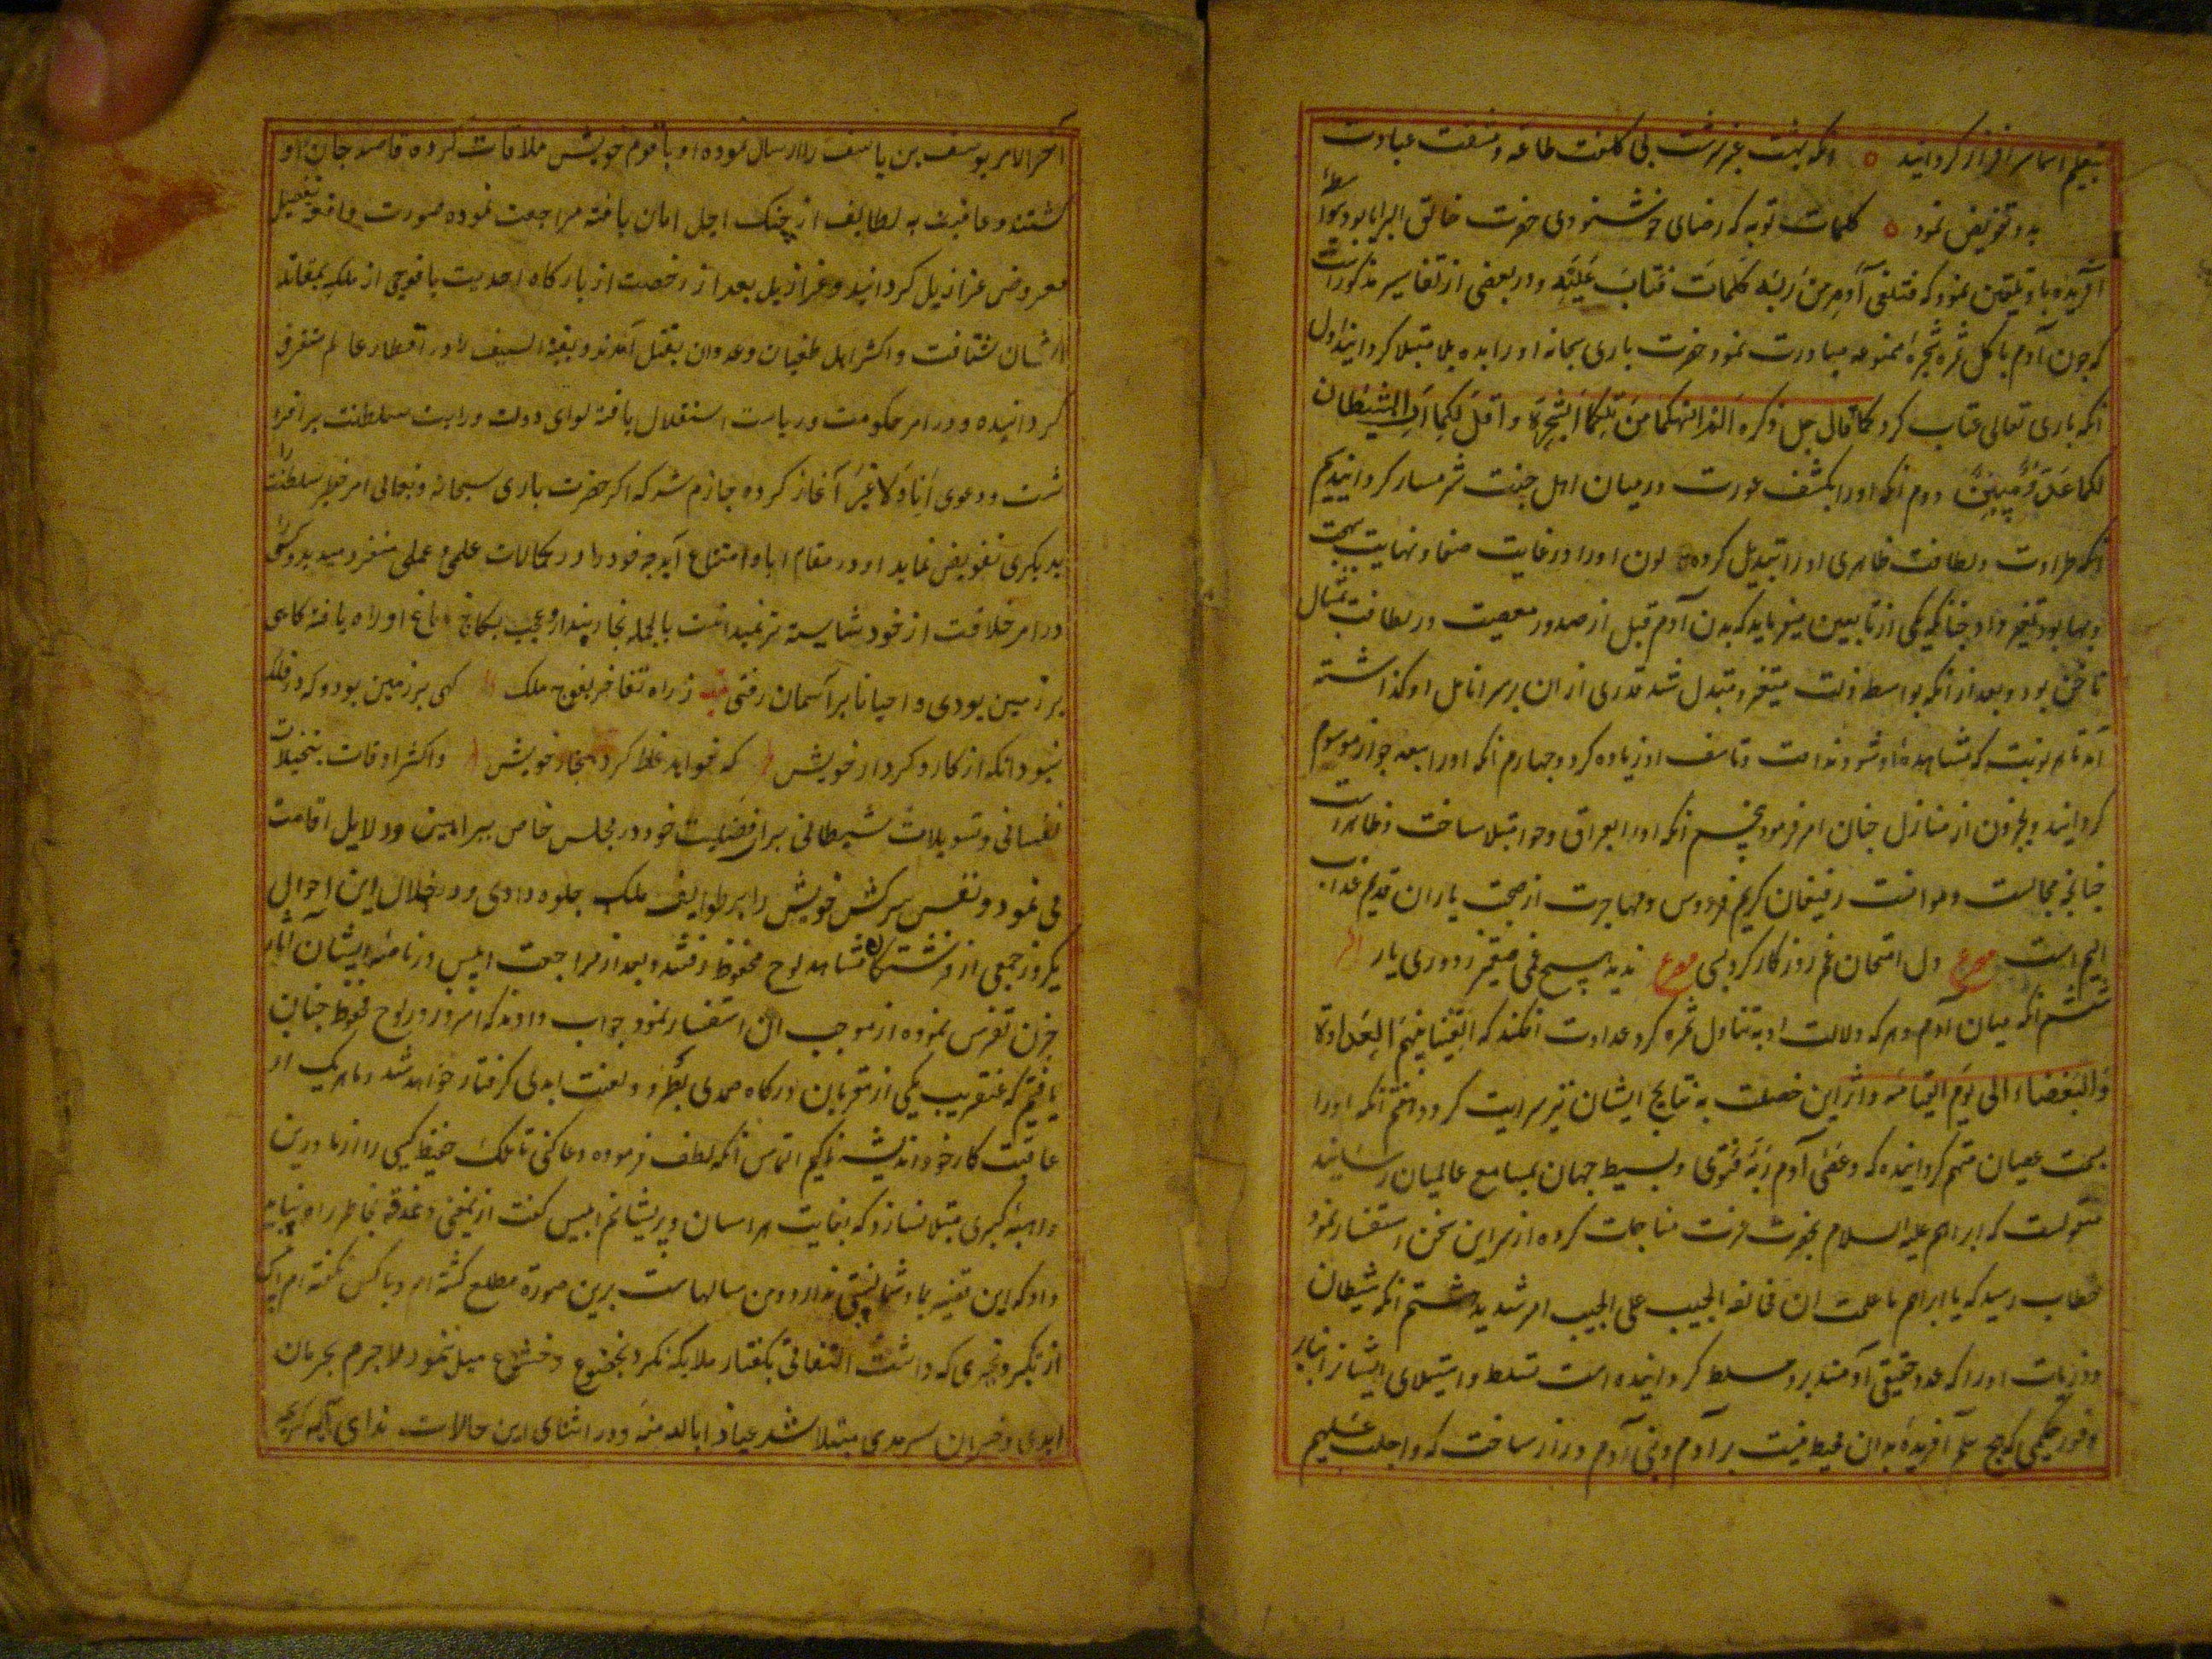 بتعلیم اسما سرافراز کردانید ه انکه بهشت عنبر سرشت بی کلفت طاعه و مشقت عبادت
بدو تفویض نمود ه کلمات توبه که رضای خوشنودی حضرت خالق البرایا بود
آفریده باو تلقین نمود که فتلقی آدم من ربه کلمات فتاب علیه و در بعضی از تفاسیر مذکور است
که چون آدم باکل ثمره شجره ممنوعه مبادرت نمود حضرت باری سبحانه او را بده بلا مبتلا کردانید اول
انکه باری تعالی عتاب کرد کما قال جل ذکره الم انهکما من تلکما الشجره و اقل لکما ان الشیطان
لکما عدو مبین دوم انکه او را بکشف عورت در میان اهل جنت شرمسار کردانید سیم
انکه طراوت و لطافت ظاهری او را تبدیل کرده لون او را در غایت صفا و نهایت بهجت
و بها بود تغیر داد چنانکه یکی از تابعین میفرماید که بدن آدم قبل از صدور معصیت در لطافت بمثال
ناخن بود و بعد از انکه بواسطه زلت متغیر و متبدل شد قدری از ان بر سر انامل او کذاشته
اند تا هر نوبت که مشاهده او شود ندامت و تاسف او زیاده کردد چهارم انکه او را ببعد جوار موسوم
کردانید و بخروج از منازل جنان امر فرمود پنجم انکه او را بفراق حوا مبتلا ساخت و ظاهر است
چنانچه مجالست و موانست رفیقان کریم فردوس و مهاجرت از صحبت یاران قدیم عذاب
الیم است مصرع دل امتحان غم روزکار کرد بسی مصرع ندید هیچ غمی صعبتر ز دوری یار
ششم انکه میان آدم و هر که دلالت او به تناول شجره کرد عداوت افکند که القینا بینهم العداوة
والبغضاء الی یوم القیامه و اثر این خصلت به نتایج ایشان نیز سرایت کرد هفتم انکه او را
بسمت عصیان متهم کردانیده که و عصی آدم ربه فغوی و بسیط جهان بمسامع عالمیان رسانید
منقولست که ابراهیم علیه السلام بحضرت عزت مناجات کرده از سر این سخن استفسار نمود
خطاب رسید که یا ابراهیم ما علمت ان مخالفه الحبیب علی الحبیب امر شدید هشتم انکه شیطان
و ذریات او را که عدو حقیقی آدمند برو مسلط کردانیده است تسلط و استیلای ایشان از
وفور حکمتی که هیچ علم آفریده به ان محیط نیست بر آدم و بنی آدم دراز ساخت که و اجلب علیهم
آخر الامر یوسف بن یاسف را ارسال نموده او با قوم خویش ملاقات کرده قاصد جان او
کشتند و عاقبت به لطایف از چنک اجل امان یافته مراجعت نموده صورت واقعه بتفصیل
معروض عزازیل کردانید و عزازیل بعد از رخصت از بارکاه احدیت با فوجی از ملایکه بمقاتله
ایشان شتافت و اکثر اهل طغیان و عدوان بقتل آمدند و بقیه السیف را در اقطار عالم متفرق
کردانیده و در امر حکومت و ریاست استقلال یافته لوای دولت و رایت سلطنت برافرا
شت و دعوی انا و لا غیر آغاز کرده جازم شد که اکر حضرت باری سبحانه و تعالی امر خطیر سلطنت را
بدیکری تفویض نماید او در مقام ابا و امتناع آید چه خود را در کمالات علمی و عملی منفرد میدید و کسی
در امر خلافت از خود شایسته تر نمیدانست بالجمله بخار پندار و عجب بکاخ دماغ او راه یافته کاهی
بر زمین بودی و احیانا بر آسمان رفتی ز راه تفاخر بفوج ملک کهی بر زمین بود و که در فلک
نبود انکه از کار و کردار خویش که خواهد غلط کرد هنجار خویش و اکثر اوقات بتخیلات
نفسانی و تسویلات شیطانی بر افضلیت خود در مجلس خاص ببراهین و دلایل اقامت
می نمود و نفس سرکش خویش را بر طوایف ملک جلوه دادی و در خلال این احوال
یکروز جمعی از فرشتکان بمشاهده لوح محفوظ رفتند و بعد از مراجعت ابلیس در ناصیه ایشان آثار
حزن تفرس نموده از موجب ان استفسار نمود جواب دادند که امروز در لوح محفوظ چنان
یافتیم که عنقریب یکی از مقربان درکاه صمدی بطرد و لعنت ابدی کرفتار خواهد شد و ما هر یک از
عاقبت کار خود اندیشه ناکیم التماس انکه لطف فرموده دعا کنی تا ملک حفیظ کسی را از ما در این
داهیه کبری مبتلا نسازد که بغایت هراسان و پریشانیم ابلیس کفت ازینمعنی دغدغه بخاطر راه
داد که این قضیه بما و شما نسبتی ندارد و من سالهاست برین صورة مطلع کشته ام و با کس نکفته ام
از تکبر و تجبری که داشت التفاتی بکفتار ملایکه نکرد بخضوع و خشوع میل ننمود لاجرم بحرمان
ابدی و خسران سرمدی مبتلا شد عیاذا بالله منه و در اثنای این حالات ندای آیه کریمه